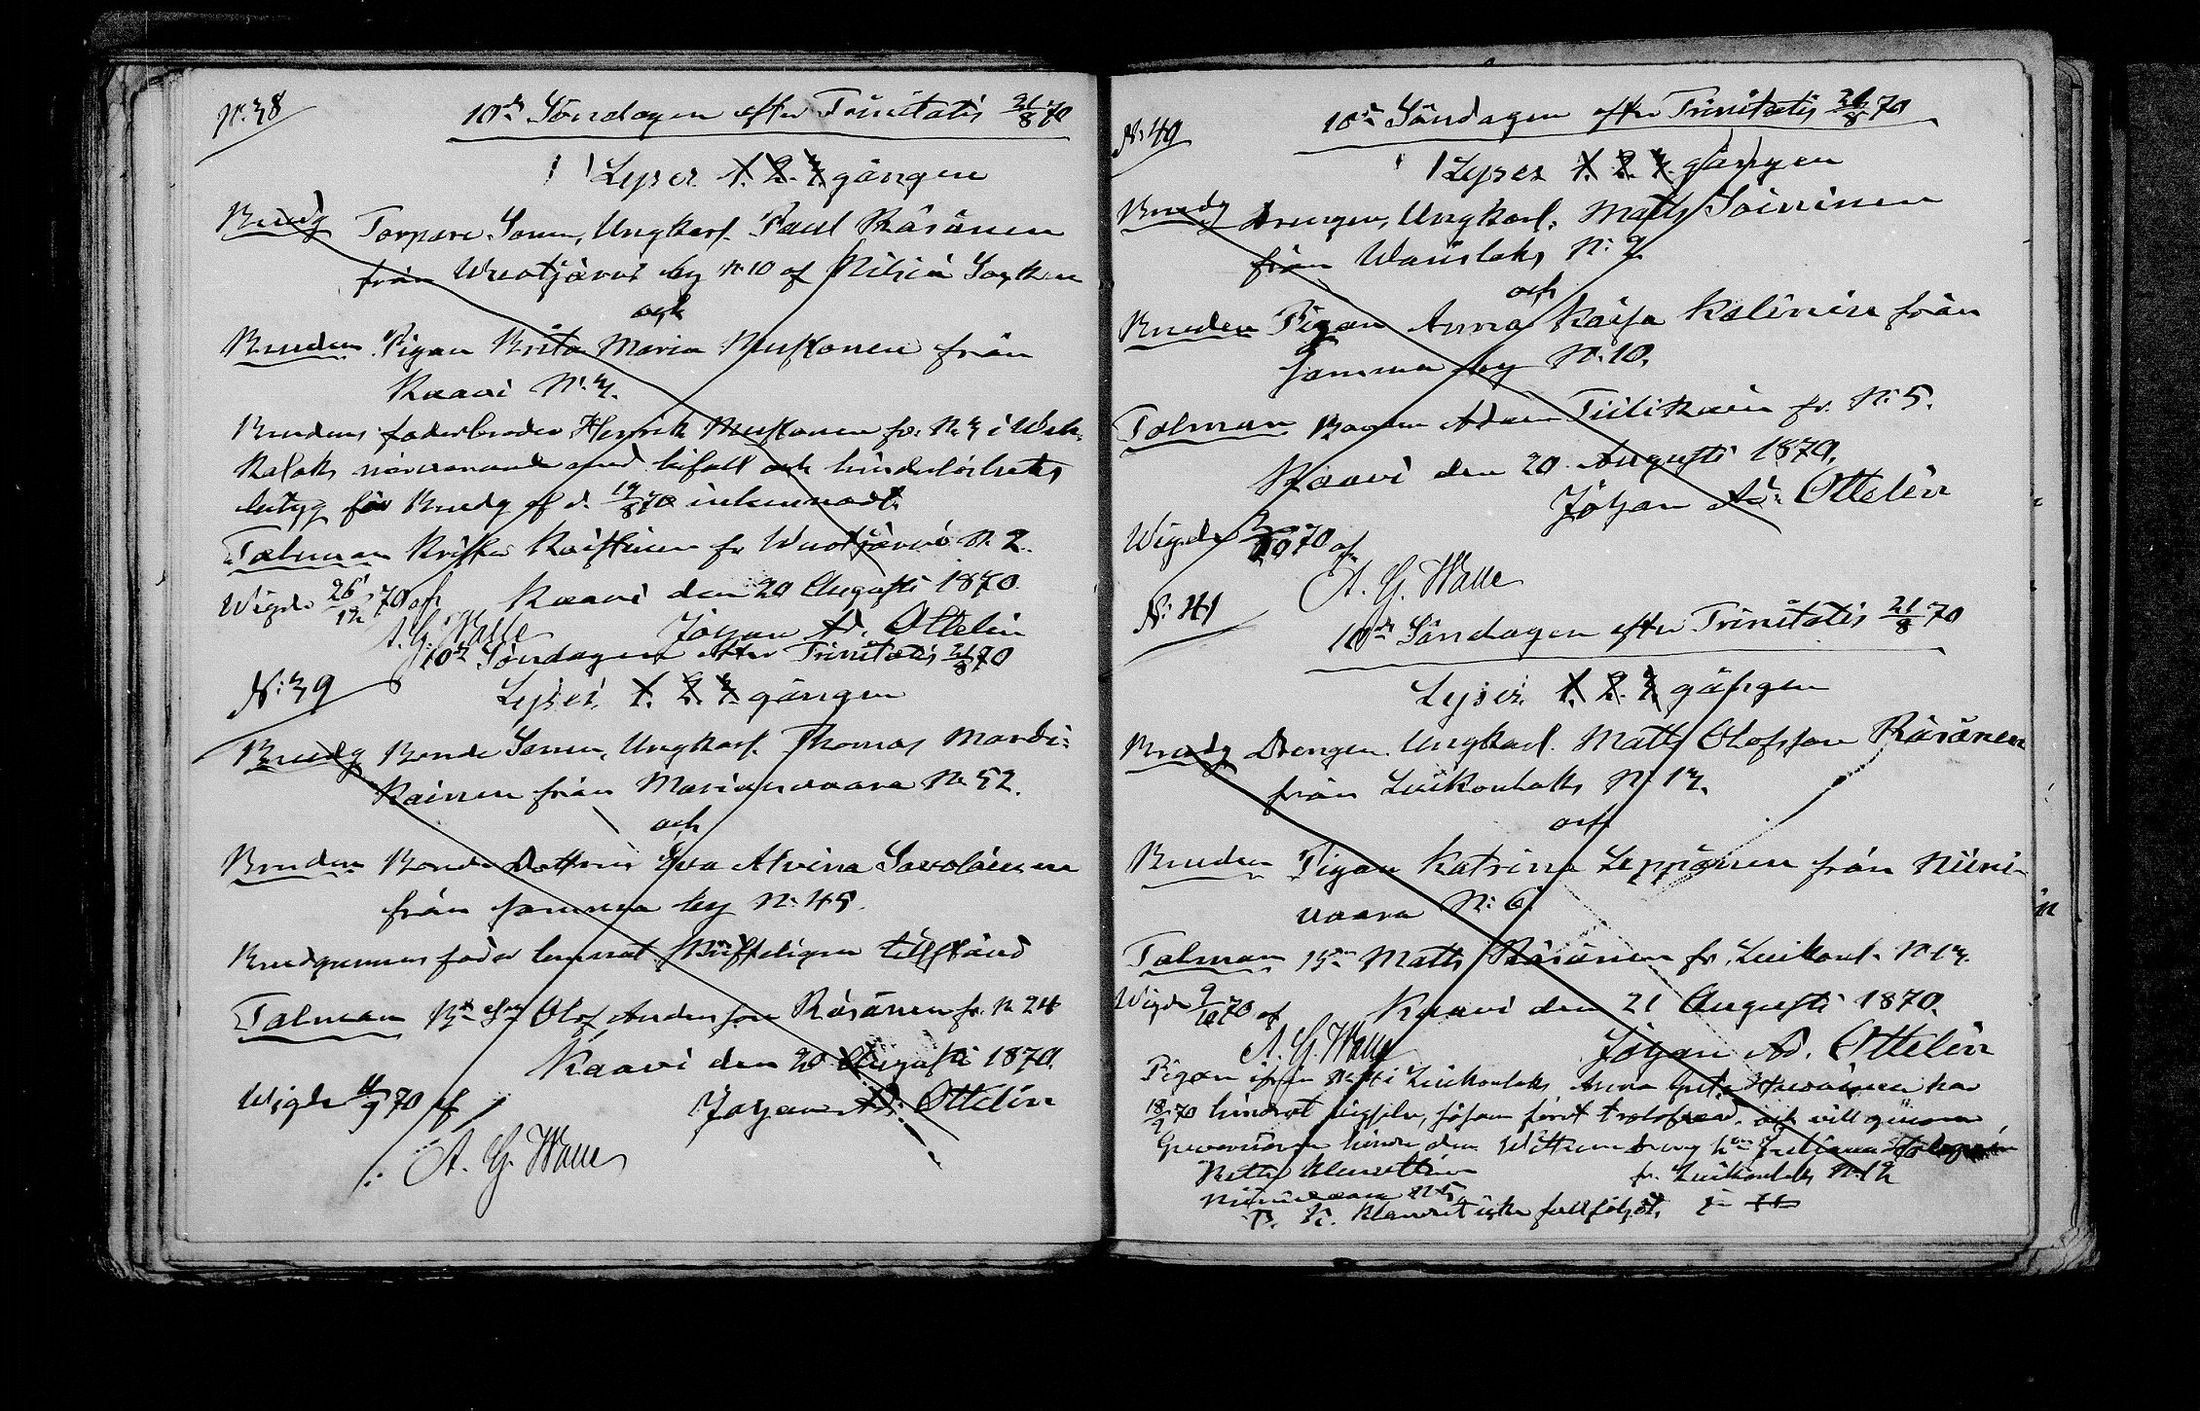 N:38
10de Söndagen efter Trinitatis 21/8 70
Lyses 1. 2. 3. gången
Brudg Torpare Sonen, Ungkarl. Paul Räsänen
från Wuotjärvi by N:10 af Nilsiä Socken
och
Bruden Pigan Brita Maria Mustonen från
Kaavi N:3.
Brudens faderbroder Henrik Mustonen fr. N:3 i
närvarande med bifall och hinderlöshets
betyg för Brudg af d. 19/8 70 inlemnadt.
Talman Krister fr Wuotjärvi N. 2.
Wigde 26/12 70 af
Kaavi den 20 Augusti 1870.
A. G. Walle
Johan Ad. Ottelin
N:39
10de Söndagen efter Trinitatis 21/8 70
Lyses 1. 2. 3. gången
Brudg Bonde Sonen, Ungkarl. Thomas Mardi-
kainen från Marianvaara N:52.
och
Bruden Bonde Dottren Eva Alvina Savolainen
från samma by N:45.
Brudgummens fader lemnat skriftligen tillstånd
Talman Olof Andersson Räsänen fr. N 24
Kaavi den 20 Augusti 1870.
Wigde 11/9 70 af
Johan Ad. Ottelin
A. G. Walle
N:40
10de Söndagen efter Trinitatis 21/8 70
Lyses 1. 2. 3. gången
Brudg Drengen, Ungkarl. Matts Soininen
från Wauslaks N:2
och
Bruden Pigan Anna Kaisa Kalinin från
Samma by N:10.
Talman Bonden Adam Tiilikain fr. N:5.
Kaavi den 20 Augusti 1870.
Johan Ad. Ottelin
Wigde 70 af
A. G. Walle
N:41
10de Söndagen efter Trinitatis 21/8 70
Lyses 1. 2. 3. gången
Brudg Drengen Ungkarl. Matts Olofsson Räsänen
från Luikonlaks N:13.
och
Bruden Pigan Katrina Leppänen från Niini-
vaara N:6.
Talman Matts Räsänen fr. Luikonl. N:13.
Wigde 9/10 70 af
Kaavi den 21 Augusti 1870.
A. G. Walle
Johan Ad. Ottelin
Pigan ifrån i Luikonlaks Anna har
18/9 70 hindrat såsom förut trolofvad, och vill genom
hindra dem Wittnen
fr. Luikonlaks N:12
Niinivaara N:5
Klandret icke fullföljdt.